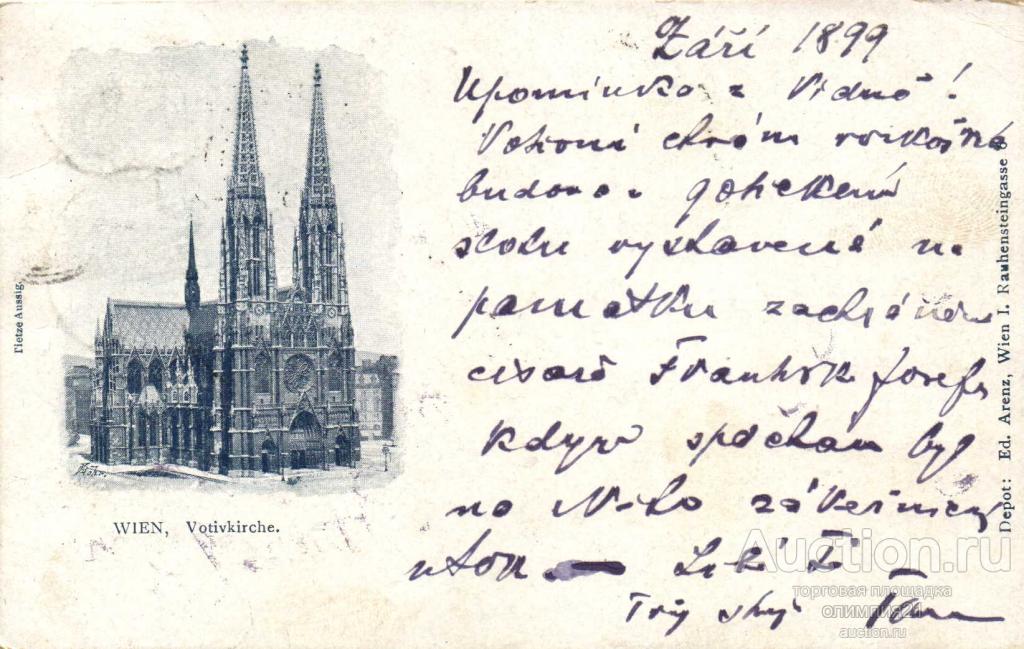 Září 1899
Upomínka z Vídně!
Votivní chrám rozkošná
budova v gotickém
slohu vystavená na
památku zachránění
císaře Františk Josefa
když spáchán byl
na Něho zákeřnický
útok —
Tvůj strýc
WIEN, Votivkirche.
Tietze Aussig.
Depot: Ed. Arenz, Wien I. Rauhensteingasse 8
Auction.ru
торговая площадка
олимпия24
auction.ru